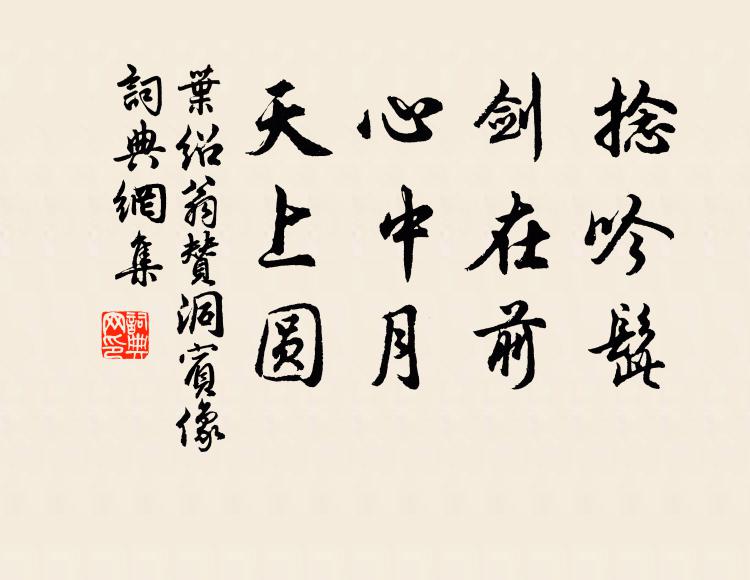 捻吟髭
剑在前
心中月
天上圆
葉绍翁赞洞賓像
詞典網集
詞典
网印